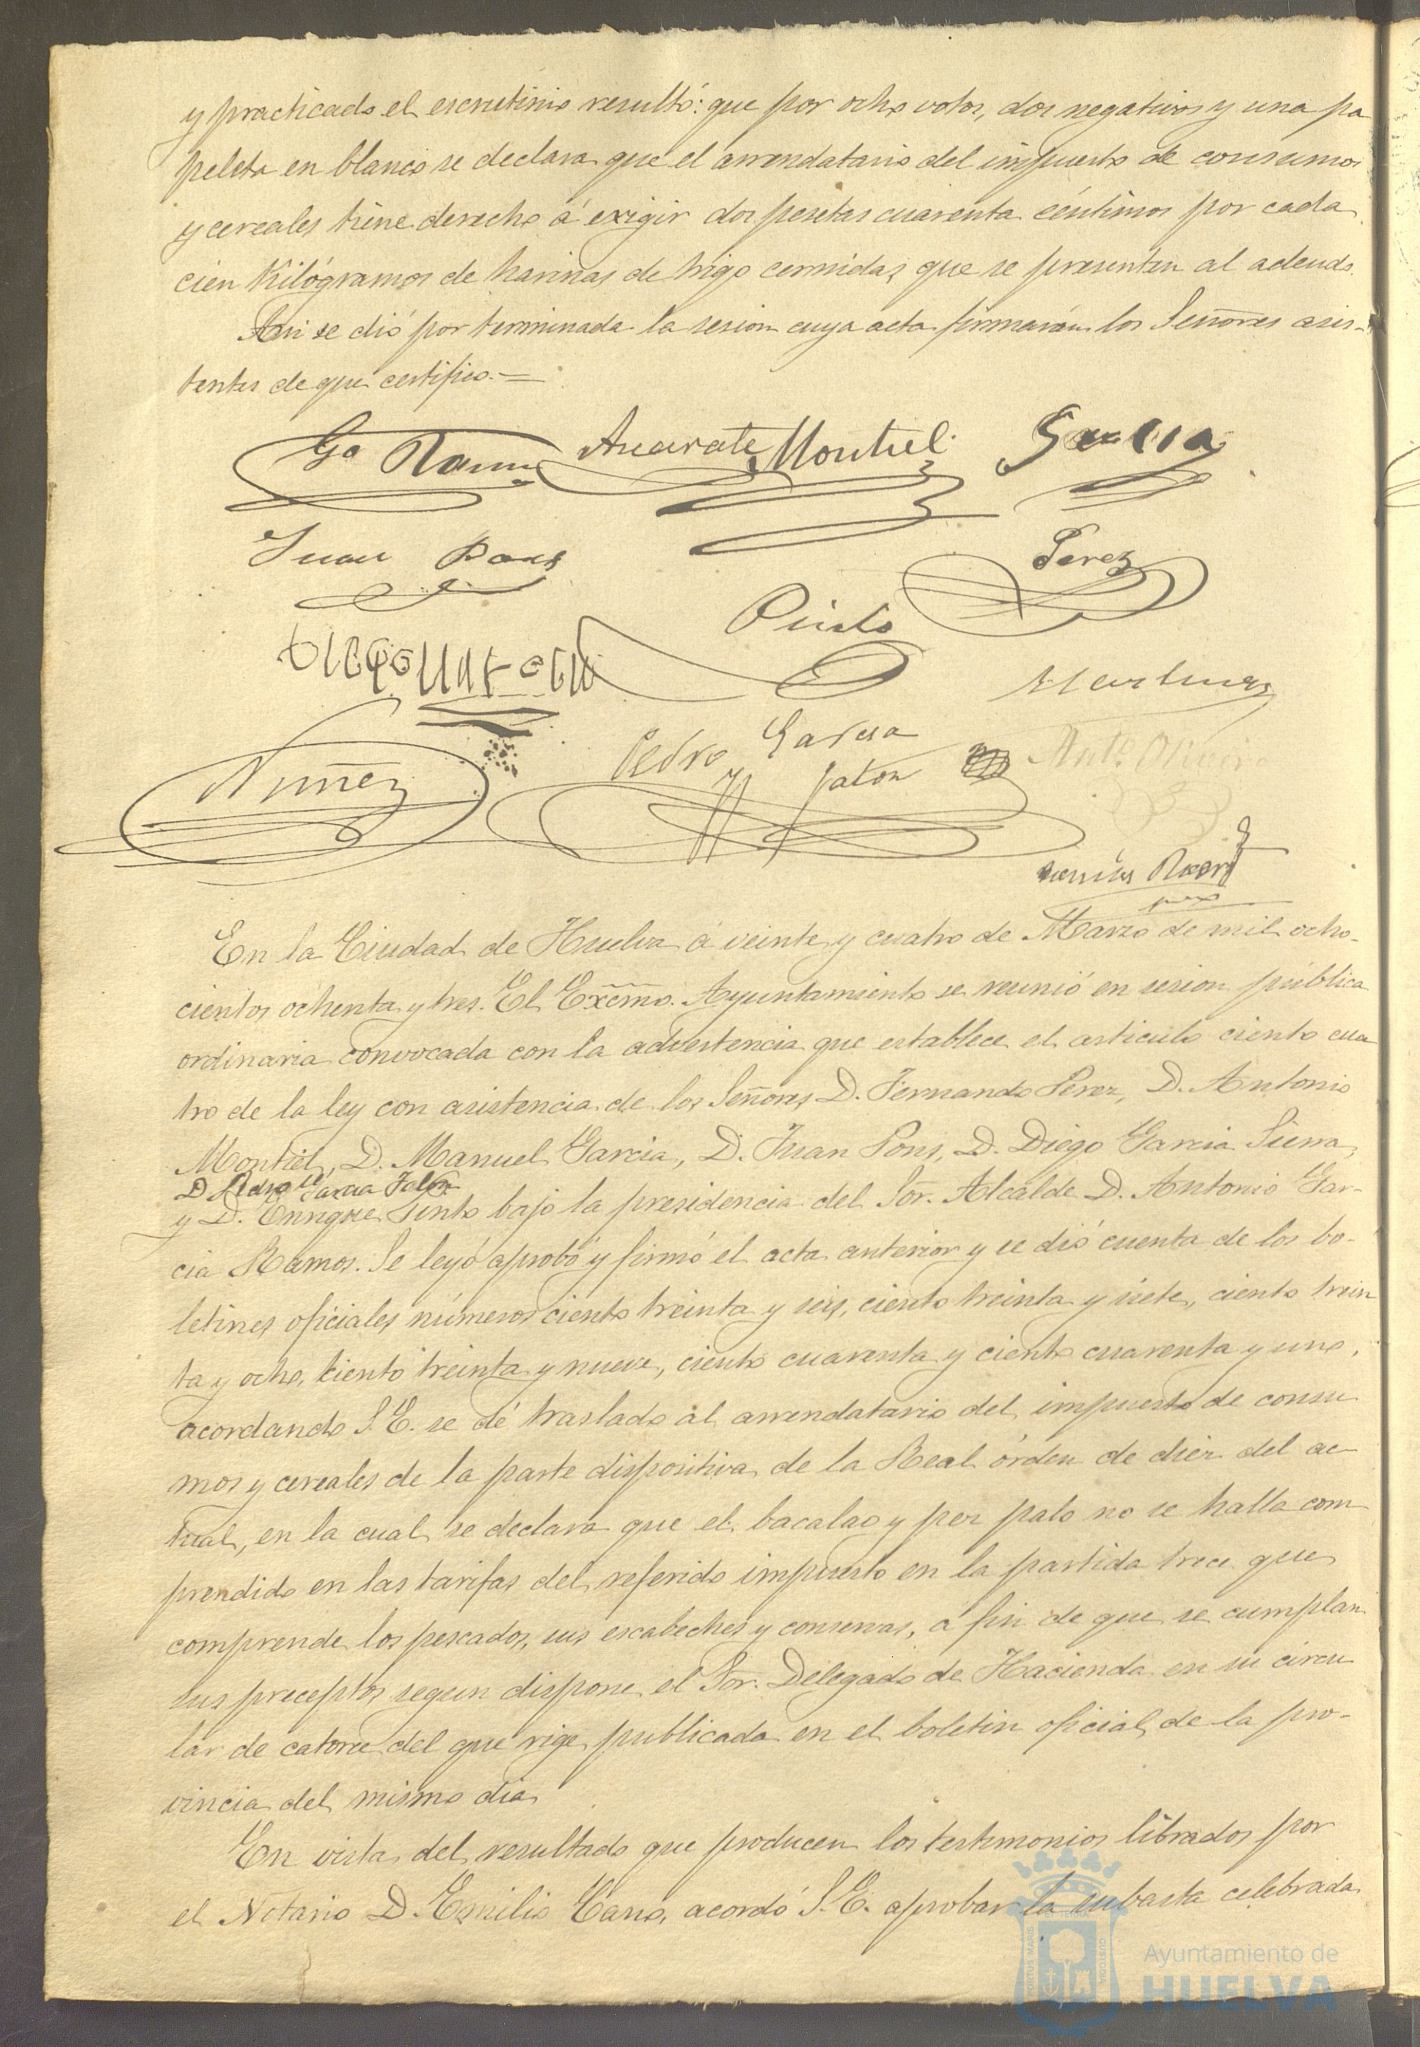 y practicado el escrutinio resultó: que por ocho votos, dos negativos y una pa
peleta en blanco se declara que el arrendatario del impuesto de consumos
y cereales tiene derecho á exigir dos pesetas cuarenta céntimos por cada
cien Kilógramos de harinas de trigo cernidas, que se presenten al adeudo.
Asi se dió por terminada la sesion cuya acta firmarán los Señores asis-
tentes de que certifico.=
Ga Ramos Azcarate Montiel Garcia
Juan Pons
Perez
Pinto
Martinez
Pedro Garcia
Nuñez
Jalon
Anto Olivero
En la Ciudad de Huelva á veinte y cuatro de Marzo de mil ocho-
cientos ochenta y tres. El Excmo. Ayuntamiento se reunió en sesion pública
ordinaria convocada con la advertencia que establece el articulo ciento cua
tro de la ley con asistencia de los Señores D. Fernando Perez, D. Antonio
Montiel, D. Manuel Garcia, D. Juan Pons, D. Diego Garcia Sierra,
D Pedro Garcia Jalon
y D. Enrique Pinto bajo la presidencia del Sor. Alcalde D. Antonio Gar-
cia Ramos. Se leyó aprobó y firmó el acta anterior y se dió cuenta de los bo-
letines oficiales números ciento treinta y seis, ciento treinta y siete, ciento trein
ta y ocho, ciento treinta y nueve, ciento cuarenta y ciento cuarenta y uno,
acordando S. E. se dé traslado al arrendatario del impuesto de consu
mos y cereales de la parte dispositiva de la Real órden de diez del ac-
tual, en la cual se declara que el bacalao y pez palo no se halla com
prendido en las tarifas del referido impuesto en la partida trece que
comprende los pescados, sus escabeches y conservas, á fin de que se cumplan
sus preceptos segun dispone el Sor. Delegado de Hacienda en su circu
lar de catorce del que rige publicada en el boletin oficial de la pro-
vincia del mismo dia
En vista del resultado que producen los testimonios librados por
el Notario D. Emilio Cano, acordó S. E. aprobar la subasta celebrada
Ayuntamiento de
HUELVA